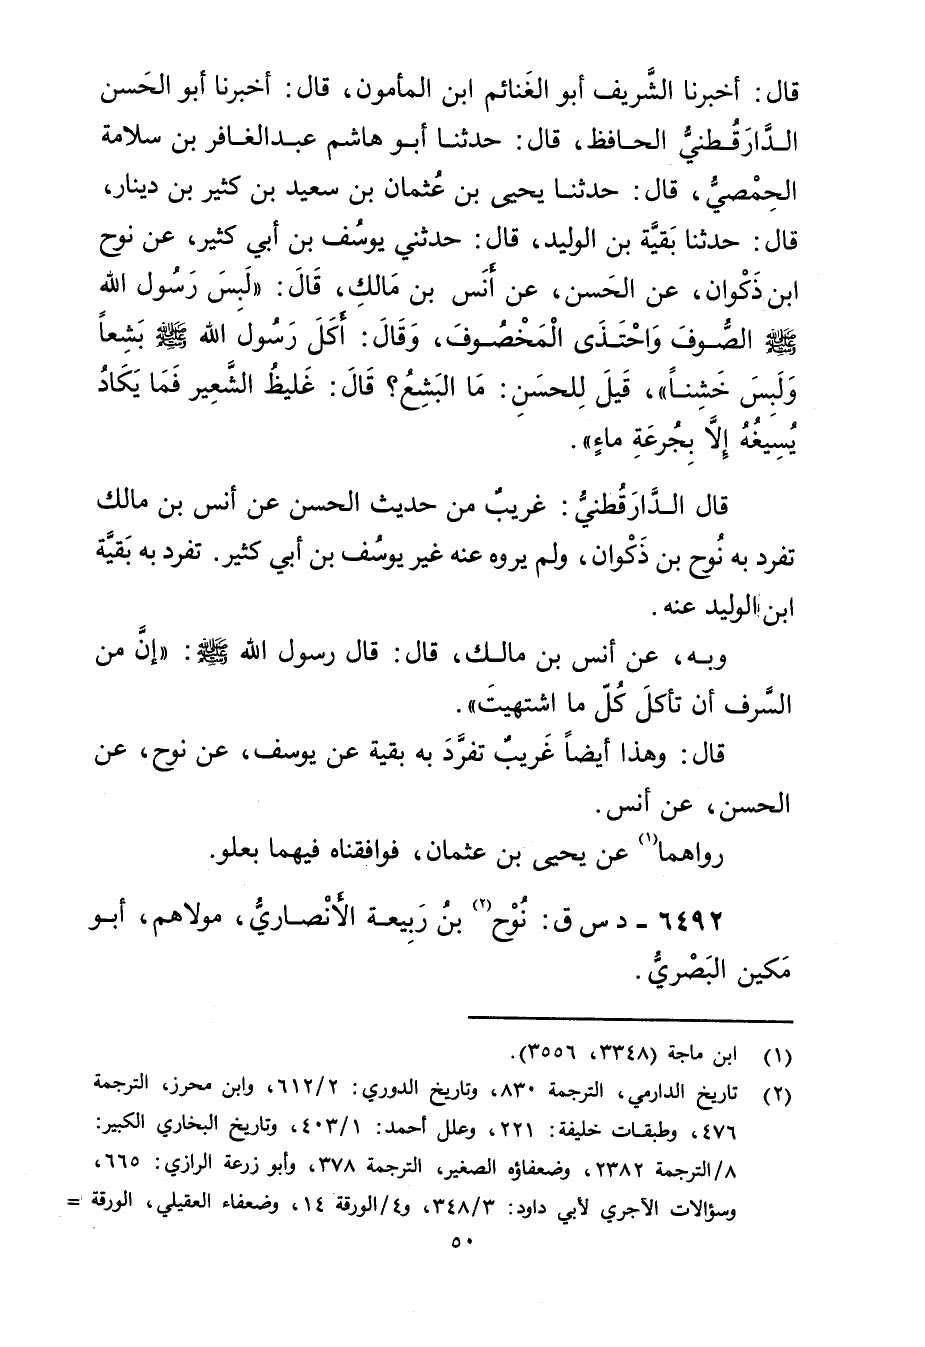 قال: أخبرنا الشَّريف أبو الغَنائم ابن المأمون، قال: أخبرنا أبو الحَسن
الدَّارَقُطنيُّ الحافظ، قال: حدثنا أبو هاشم عبدالغافر بن سلامة
الحِمْصيُّ، قال: حدثنا يحيى بن عُثمان بن سعيد بن كثير بن دينار،
قال: حدثنا بَقيَّة بن الوليد، قال: حدثني يوسُف بن أبي كثير، عن نوح
ابن ذَكْوان، عن الحَسن، عن أَنَس بن مَالكِ، قَالَ: «لَبِسَ رَسُول الله
ﷺ الصُّوفَ وَاحْتَذَى الْمَخْصُوفَ، وَقَالَ: أَكَلَ رَسُول الله ﷺ بَشِعاً
وَلَبِسَ خَشِناً»، قيلَ لِلحسَنِ: مَا البَشِعُ؟ قَالَ: غَليظُ الشَّعيرِ فَمَا يَكَادُ
يُسِيغُهُ إِلَّا بِجُرعَةِ ماءٍ».
قال الدَّارَقُطنيُّ: غريبٌ من حديث الحسن عن أنس بن مالك
تفرد به نُوح بن ذَكْوان، ولم يروه عنه غير يوسُف بن أبي كثير. تفرد به بَقيَّة
ابن الوليد عنه.
وبه، عن أنس بن مالك، قال: قال رسول الله ﷺ: «إنَّ من
السَّرف أن تأكلَ كُلّ ما اشتهيتَ».
قال: وهذا أيضاً غَريبٌ تفرَّدَ به بقية عن يوسف، عن نوح، عن
الحسن، عن أنس.
رواهما(١) عن يحيى بن عثمان، فوافقناه فيهما بعلو.
٦٤٩٢ - د س ق: نُوْح(٢) بنُ رَبِيعة الأَنْصاريُّ، مولاهم، أبو
مَكين البَصْريُّ.
(١) ابن ماجة (٣٣٤٨، ٣٥٥٦).
(٢) تاريخ الدارمي، الترجمة ٨٣٠، وتاريخ الدوري: ٦١٢/٢، وابن محرز، الترجمة
٤٧٦، وطبقات خليفة: ٢٢١، وعلل أحمد: ٤٠٣/١، وتاريخ البخاري الكبير:
٨/الترجمة ٢٣٨٢، وضعفاؤه الصغير، الترجمة ٣٧٨، وأبو زرعة الرازي: ٦٦٥،
وسؤالات الآجري لأبي داود: ٣٤٨/٣، و٤/الورقة ١٤، وضعفاء العقيلي، الورقة =
٥٠